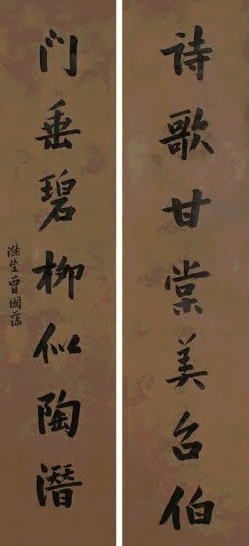 诗歌甘棠美召伯
门垂碧柳似陶潜
滌生曾國藩